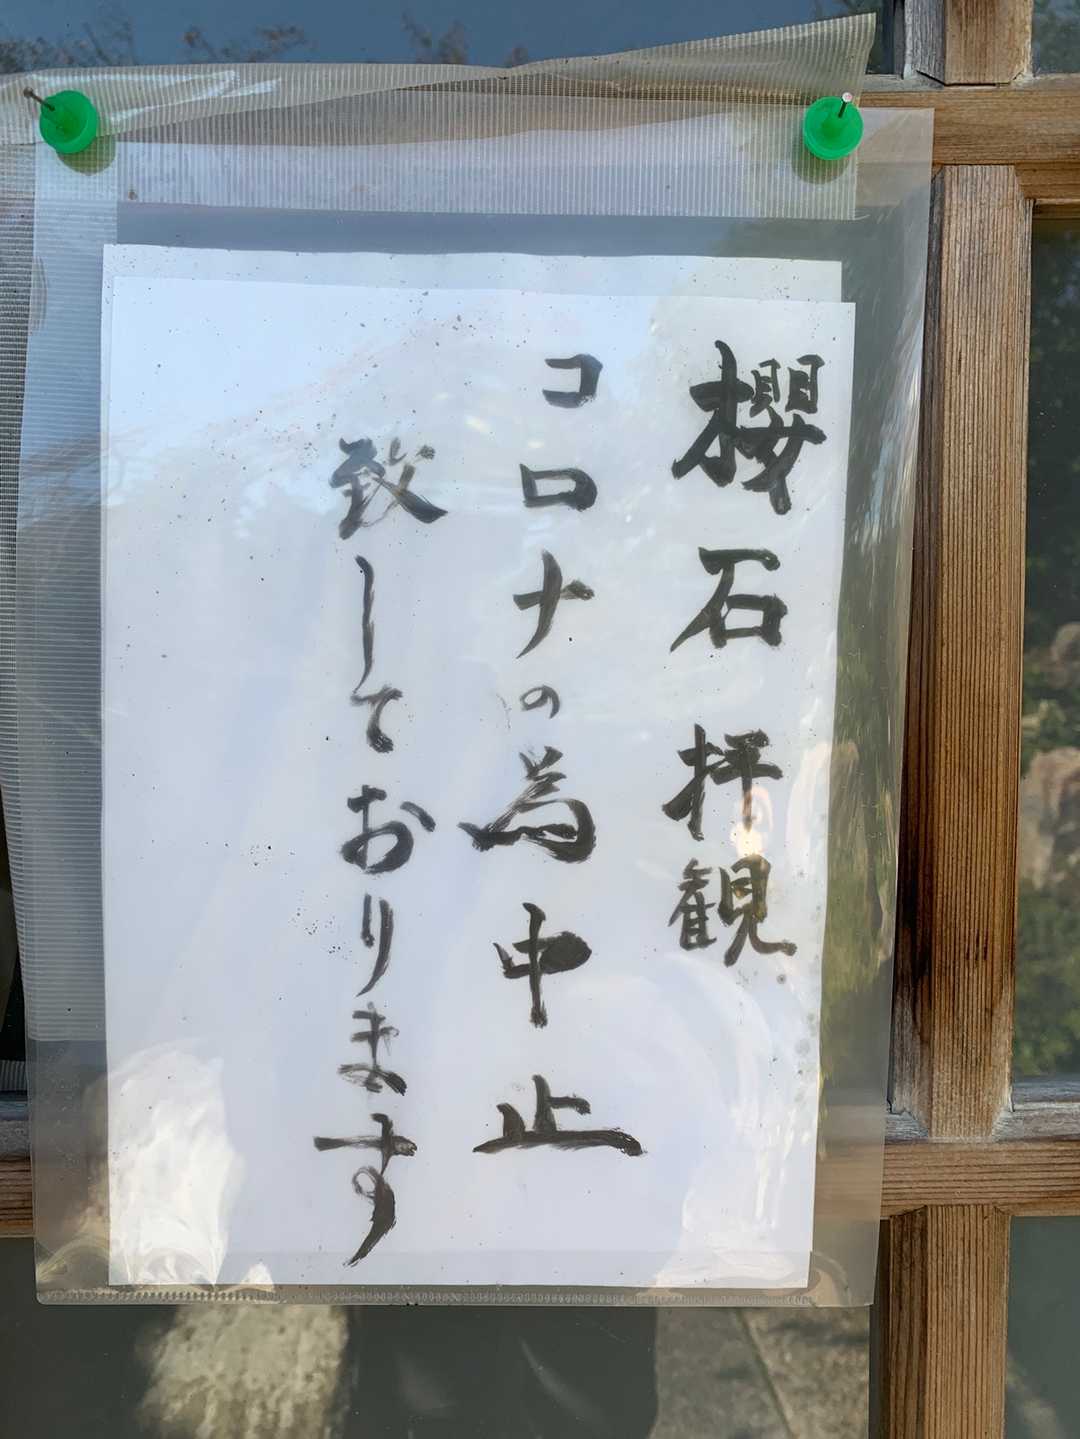 櫻石拝観
コロナの為中止
致しております